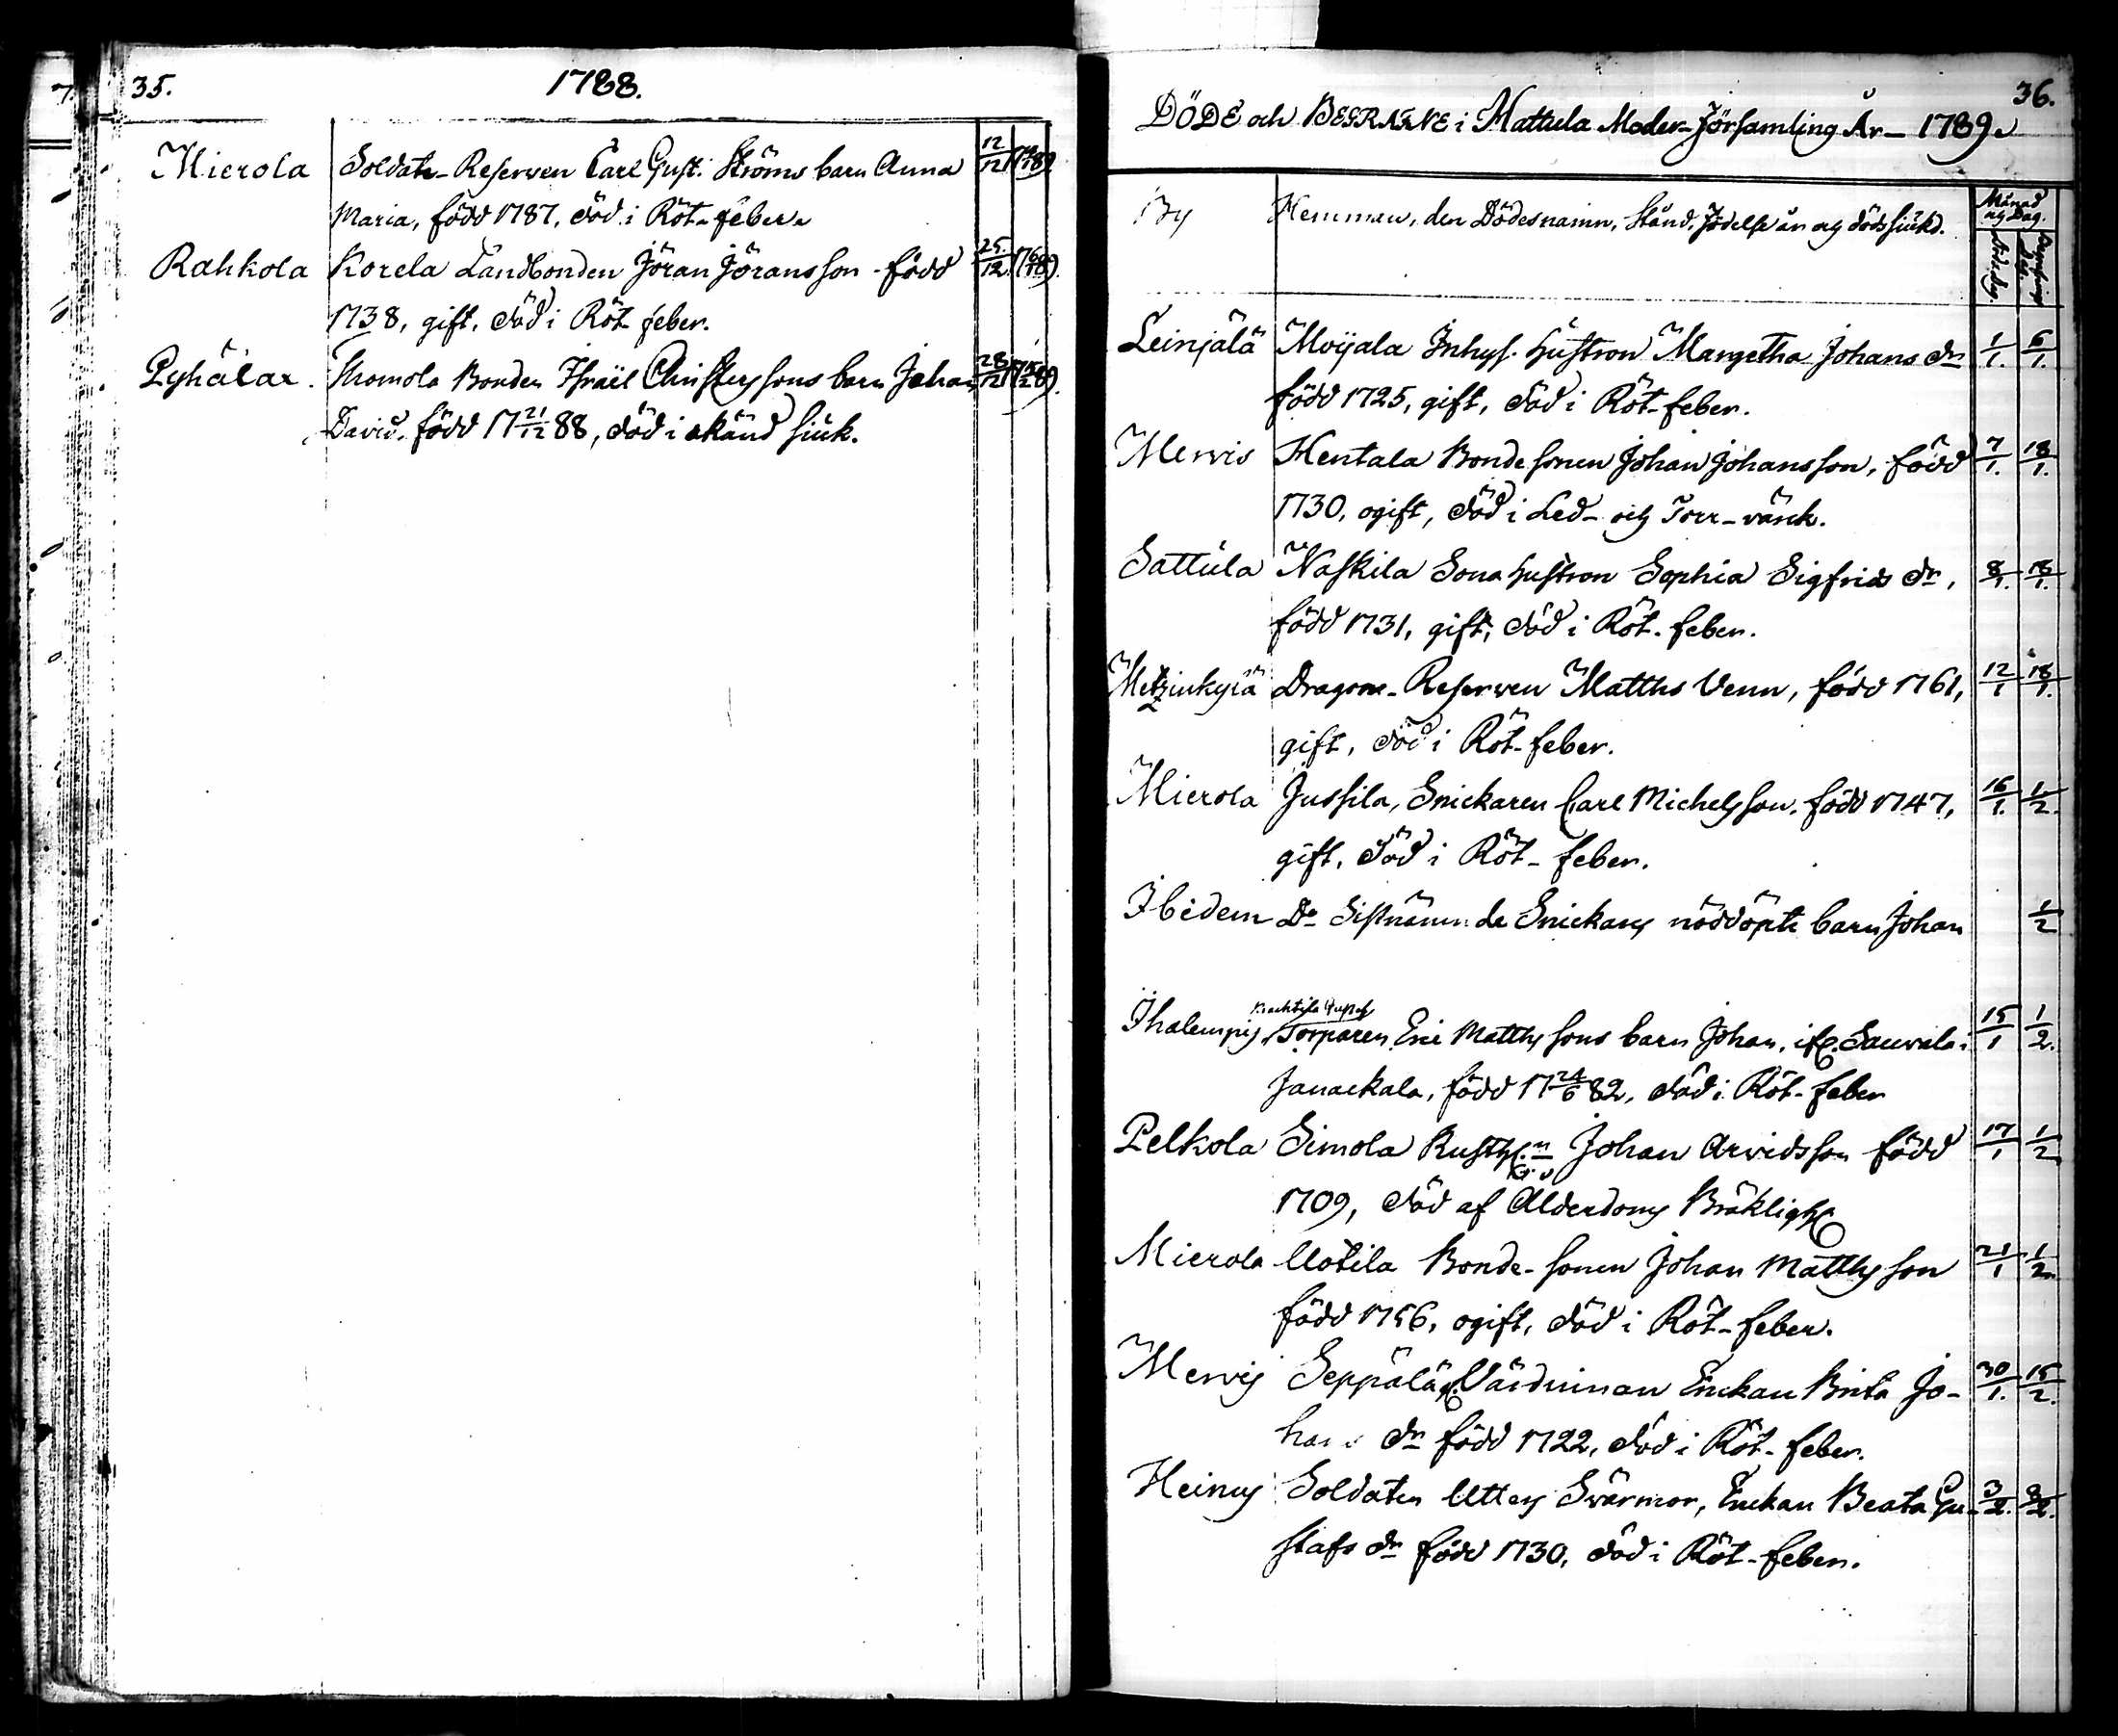 35.
1788.
Mierola Soldats-Reserven Carl Gust. Ströms barn Anna 12/12
Maria, född 1787, död i Röt-feber.
Rahkola Korela Landbonden Jöran Jöransson född 25/12
1738, gift, död i Röt-feber.
Pyhälax Bonden Israël Christerssons barn Johan 28/12
David, född 17 21/12 88, död i okänd siuk.
36.
DÖDE och BEGRAFNE i Hattula Moder-Församling År 1789.
Månad
By Hemman, den Dödes namn, Stånd, Födelse år og dödssiukd. og Dag.
Leinjälä Moijala Inhys. Hustron Margetha Johans dr 1/1. 6/1.
född 1725, gift, död i Röt-feber.
Mervis Hentala Bondesonen Johan Johansson, född 7/1. 18/1.
1730, ogift, död i Led- och Torr-värck.
Sattula Naskila Sona hustron Sophia Sigfrids dr, 8/1. 18/1.
född 1731, gift, död i Röt-feber.
Metzinkylä Dragone-Reserven Matths Venn, född 1761, 12/1 18/1.
gift, död i Röt-feber.
Mierola Jussila, Snickaren Carl Michelsson, född 1747, 16/1. 1/2.
gift, död i Röt-feber.
Ibidem Do Sistnämnde Snickares nöddöpte barn Johan 1/2
Ihalempis Torparen Eric Matthssons barn Johan, ifr. Sauvala i 15/1 1/2.
Janackala, född 17 24/6 82, död i Röt-feber
Pelkola Simola Rusth:n Johan Arvidsson född 17/1 1/2
1709, död af Ålderdoms Bräklighet
Mierola Uotila Bonde-sonen Johan Matthsson 21/1 1/2
född 1756, ogift, död i Röt-feber.
Mervis Seppälä Värdinnan Enckan Brita Jo- 30/1. 15/2.
hans dr född 1722, död i Röt-feber.
Heinus Soldaten Utters Svärmor, Enckan Beata Gu- 3/2.
stafs dr född 1730, död i Röt-feber.